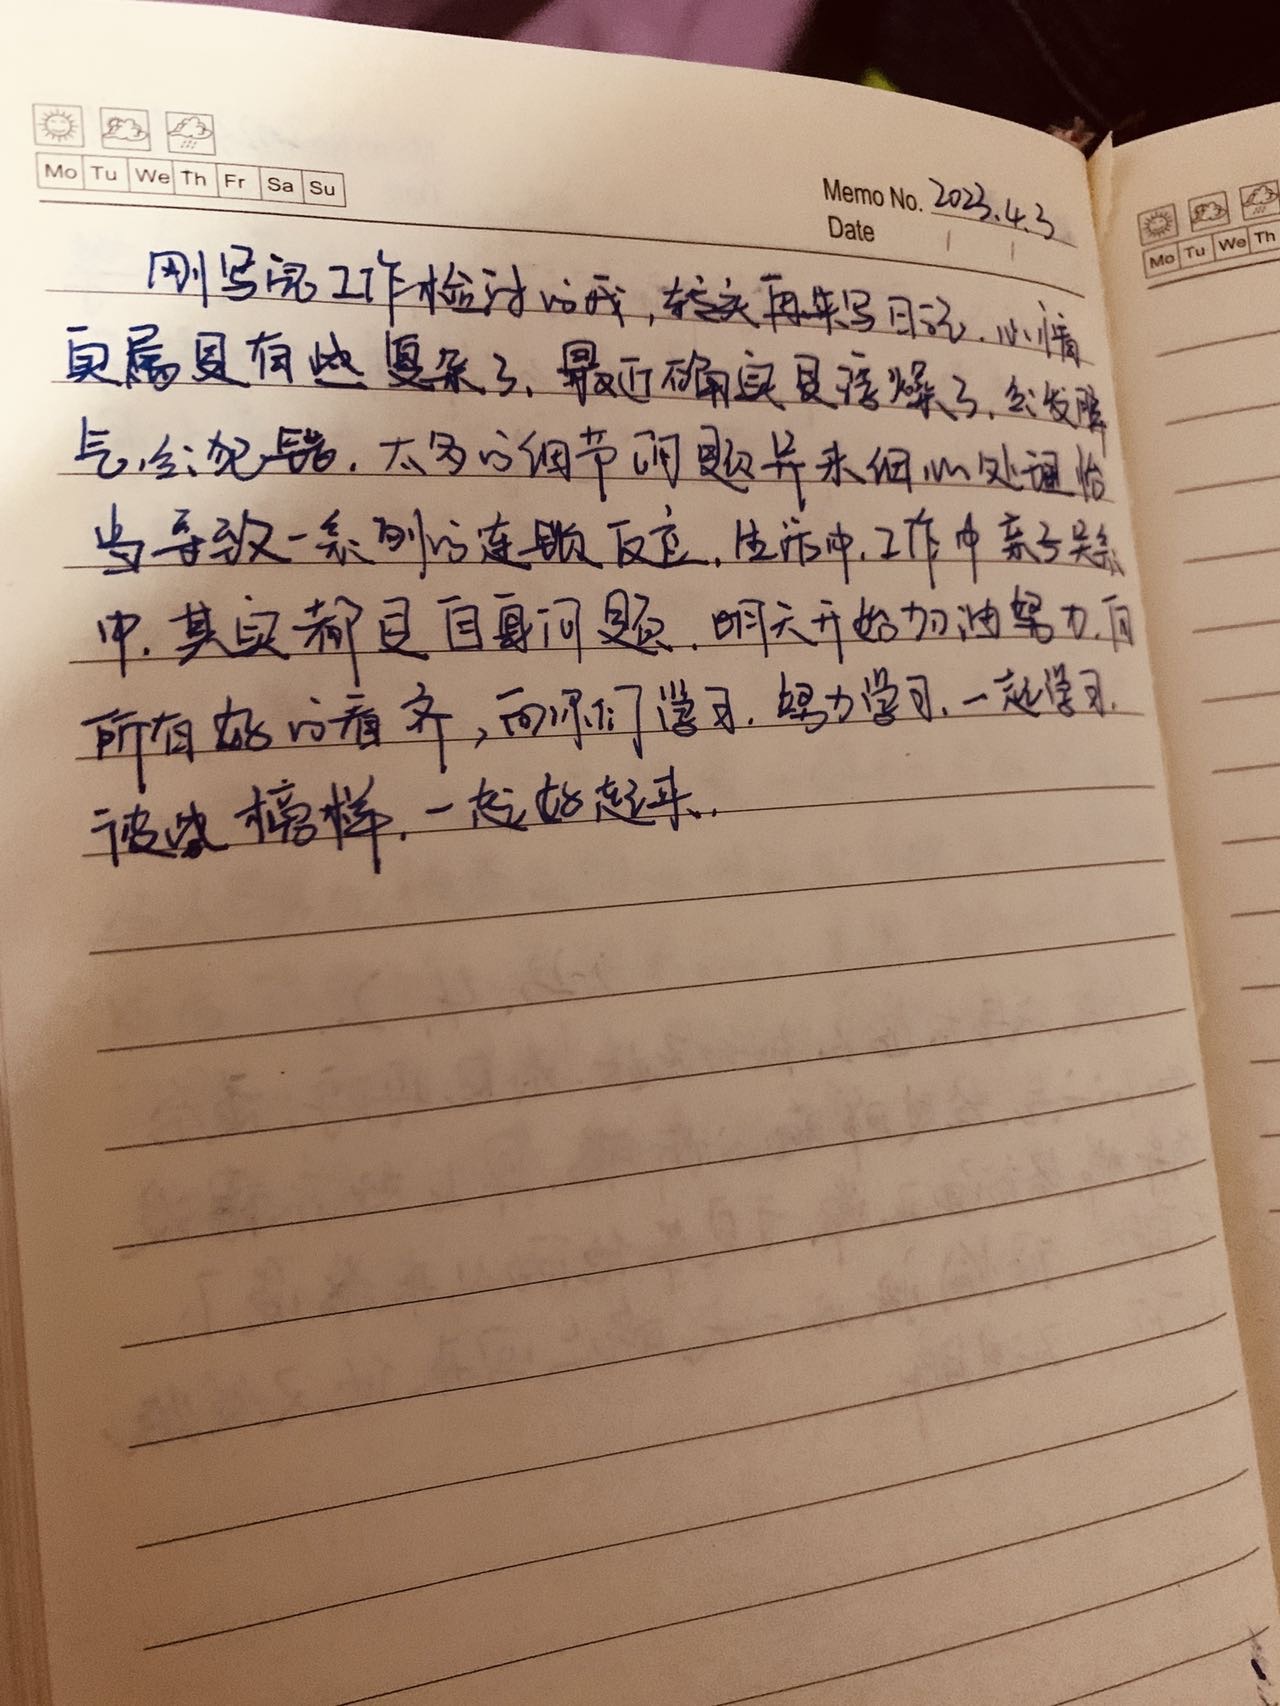 Mo Tu We Th Fr Sa Su
Memo No. 2023.4.3
Date
刚写完工作检讨的我,转头再来写日记.心情
实属是有些复杂了.最近确实是浮燥了.会发脾
气.会犯错.太多的细节问题并未细心处理恰
当导致一系列的连锁反应.生活中.工作中亲子关系
中.其实都是自身问题.明天开始加油努力.向
所有好的看齐,向你们学习.努力学习.一起学习.
榜样.一起好起来.
Mo Tu We Th